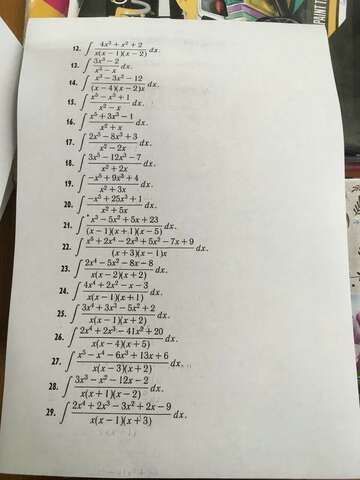 12. ∫ 4x³ + x² + 2 / x(x − 1)(x − 2) dx.
13. ∫ 3x³ − 2 / x³ − x dx.
14. ∫ x³ − 3x² − 12 / (x − 4)(x − 2)x dx.
15. ∫ x⁵ − x³ + 1 / x² − x dx.
16. ∫ x⁵ + 3x³ − 1 / x² + x dx.
17. ∫ 2x⁵ − 8x³ + 3 / x² − 2x dx.
18. ∫ 3x⁵ − 12x³ − 7 / x² + 2x dx.
19. ∫ −x⁵ + 9x³ + 4 / x² + 3x dx.
20. ∫ −x⁵ + 25x³ + 1 / x² + 5x dx.
21. ∫ x³ − 5x² + 5x + 23 / (x − 1)(x + 1)(x − 5) dx.
22. ∫ x⁵ + 2x⁴ − 2x³ + 5x² − 7x + 9 / (x + 3)(x − 1)x dx.
23. ∫ 2x⁴ − 5x² − 8x − 8 / x(x − 2)(x + 2) dx.
24. ∫ 4x⁴ + 2x² − x − 3 / x(x − 1)(x + 1) dx.
25. ∫ 3x⁴ + 3x³ − 5x² + 2 / x(x − 1)(x + 2) dx.
26. ∫ 2x⁴ + 2x³ − 41x² + 20 / x(x − 4)(x + 5) dx.
27. ∫ x⁵ − x⁴ − 6x³ + 13x + 6 / x(x − 3)(x + 2) dx.
28. ∫ 3x³ − x² − 12x − 2 / x(x + 1)(x − 2) dx.
29. ∫ 2x⁴ + 2x³ − 3x² + 2x − 9 / x(x − 1)(x + 3) dx.